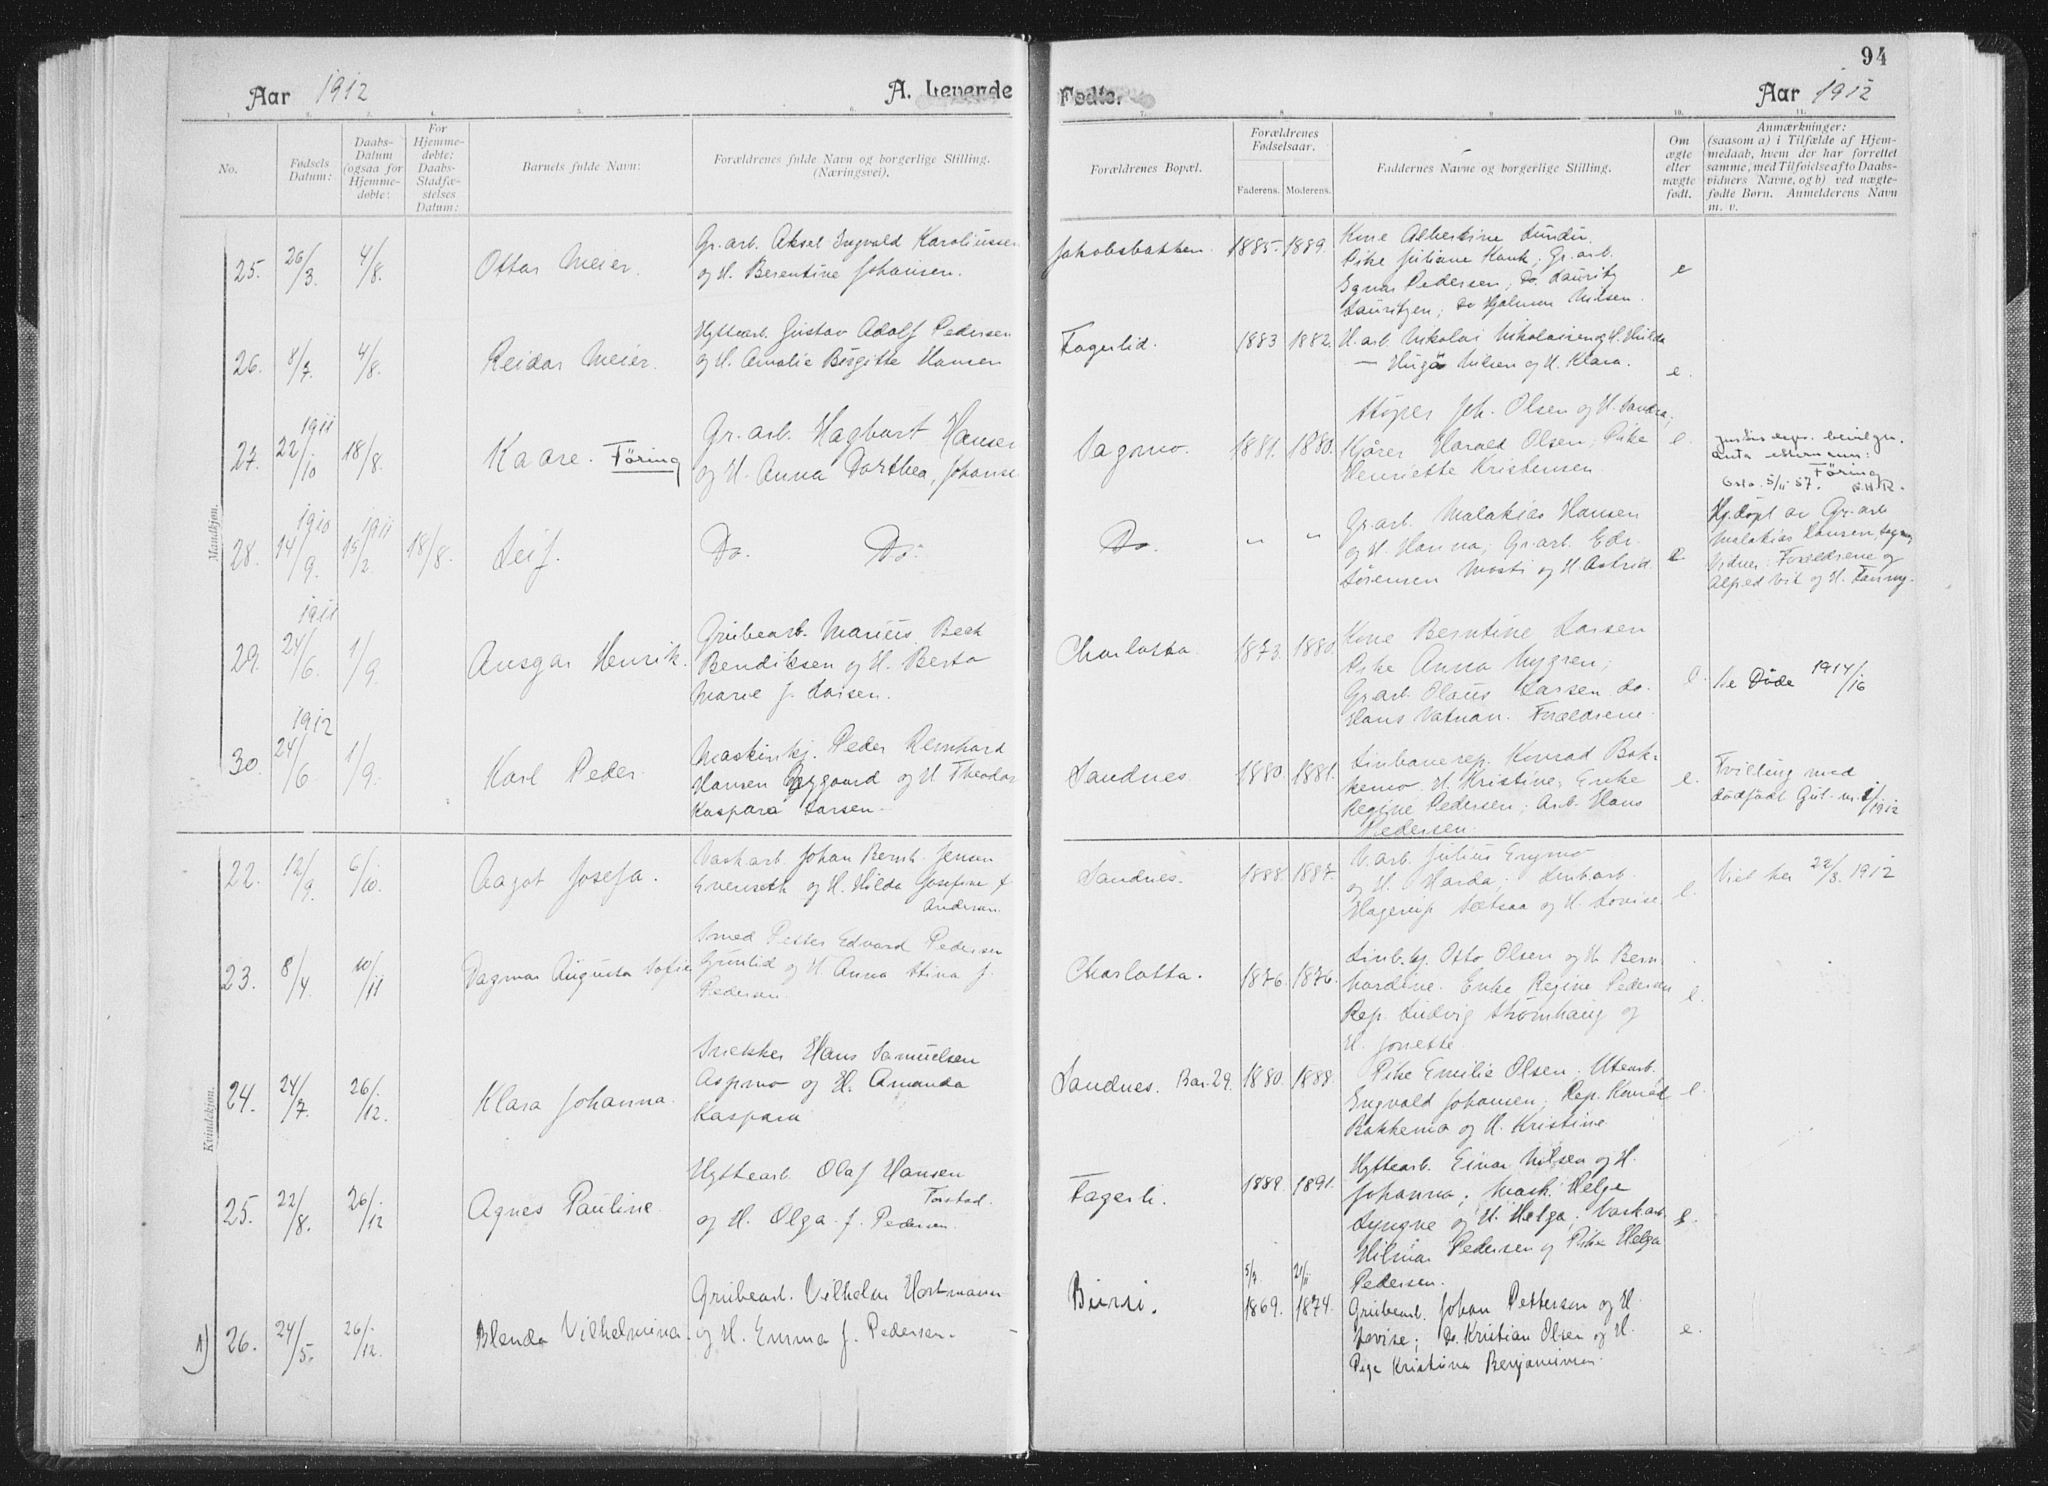 94
Aar 1912
A. Levende
Fødte.
Aar 1912
1. 2. 3. 4. 5. 6. 7. 8. 9. 10. 11.
No.
Fødsels
Datum:
Daabs-
Datum
(ogsaa for
Hjemme-
døbte:
For
Hjemme-
døbte:
Daabs-
Stadfæ-
stelses
Datum:
Barnets fulde Navn:
Forældrenes fulde Navn og borgerlige Stilling.
(Næringsvei).
Forældrenes Bopæl.
Forældrenes
Fødselsaar.
Faderens. Moderens.
Faddernes Navne og borgerlige Stilling.
Om
ægte
eller
uægte
født.
Anmærkninger:
(saasom a) i Tilfælde af Hjem-
medaab, hvem der har forrettet
samme, med Tilføielse af to Daabs-
vidners Navne, og b) ved uægte-
fødte Børn. Anmelderens Navn
m. v.
Mandkjøn.
25. 26/3. 4/8. Ottar Meier.
Gr.arb. Aksel Ingvald Karoliussen
og H. Berentine Johansen.
Jakobsbakken. 1885. 1889.
Kone Albertine Lundli.
Pike Juliane Hank; Gr.arb.
Egnar Pedersen; Do. Lauritz
Lauritzen; Do Hjalmar Nilsen.
e
26. 8/7. 4/8. Reidar Meier.
Hyttearb. Gustav Adolf Pedersen
og H. Amalie Birgitte Hansen
Fagerlid. 1883 1882.
H.arb. Nikolai Nikolaisen og H. Hilda
— Hugo Nilsen og H. Klara.
e.
27. 1911 22/10 18/8. Kaare. Föring
Gr.arb. Hagbart Hansen
og H. Anna Dorthea, Johans
Sagmo. 1881. 1880.
Støper Joh. Olsen og H. Sandra;
Kjører Harald Olsen; Pike
Henriette Kristensen
e.
bevilgn.
Föring
Oslo. 5/11 57.
28. 1910 14/9. 1911 15/2. 18/8. Leif.
Do. Do.
Do. " "
Gr.arb. Malakias Hansen
og H. Hanna; Gr.arb. Edv.
Sørensen Mosti og H. Astrid.
e
Hj.døpt av Gr.arb
Malakias Hansen Sagmo
Vidner: Forældrene og
Alfred Vik og H. Fanny.
29. 1911 24/6. 1/9. Ansgar Henrik.
Grubearb. Marius Beck
Bendiksen og H. Berta
Marie f. Larsen.
Charlotta. 1873. 1880.
Kone Berntine Larsen
Pike Anna Nygren;
Gr.arb. Olaus Larsen, do.
Hans Vatnan. Forældrene.
e.
Se Døde 1914/16
30. 1912 24/6 1/9. Karl Peder
Maskinkj. Peder Reinhard
Hansen Nygaard og H. Theodora
Kaspara Larsen.
Sandnes 1880 1881.
Linbanerep. Konrad Bak-
kemo. H. Kristine; Enke
Regine Pedersen; Arb. Hans
Pedersen.
e.
Tvilling med
dødfødt Gut. nr. 1/1912
Kvindekjøn.
22. 12/9. 6/10. Aagot Josefa.
Vaskarb. Johan Bernh. Jensen
Evenseth og H. Hilda Josefine f.
Andersen.
Sandnes. 1888. 1887.
V.arb. Julius Engmo
og H. Harda; Linb.arb.
Hagerup Sætsaa og H. Lovise.
e.
Viet her 22/3. 1912
23. 8/4. 10/11 Dagmar Augusta Sofie
Smed Petter Edvard Pedersen
Grünlid og H. Anna Stina f.
Pedersen.
Charlotta. 1876. 1876.
Linb.kj. Otto Olsen og H. Bern-
hardine. Enke Regine Pedersen
Rep. Ludvig Strømhaug og
H. Jonette.
e.
24. 24/7. 26/12. Klara Johanna.
Snekker Hans Samuelsen
Aspmo og H. Amanda
Kaspara
Sandnes. Bar. 29. 1880. 1888.
Pike Emilie Olsen. Utearb.
Engvald Johansen; Rep. Konrad
Bakkemo og H. Kristine
e.
25. 22/8. 26/12 Agnes Pauline.
Hyttearb. Olaf Hansen
Forstad.
og H. Olga. f. Pedersen.
Fagerli. 1889. 1891.
Hyttearb. Einar Nilsen og H.
Johanna; Mask. Helge
Lyngve og H. Helga; Vaskarb
Hilmar Pedersen og Pike Helga
Pedersen.
e.
1) 26. 24/5. 26/12. Blenda Vilhelmina.
Grubearb. Vilhelm Hortmann
og H. Emma f. Pedersen.
Bursi. 5/7. 1869. 21/11 1874.
Grubearb. Johan Pettersen og H.
Lovise; Do. Kristian Olsen og H.
Pige Kristina Benjaminsen.
e.